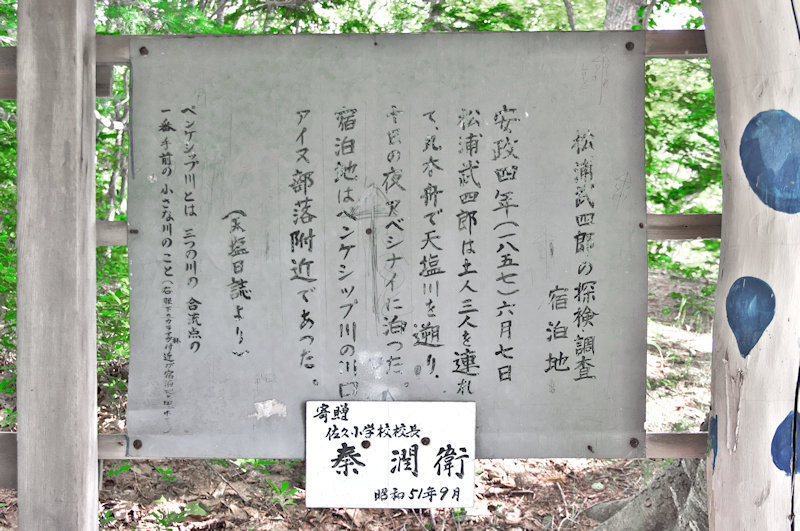 松浦武四郎の探検調査
宿泊地
安政四年(一八五七)六月七日
松浦武四郎は土人三人を連れ
て、丸木舟で天塩川を遡り、
の夜ペシナイに泊った。
宿泊地はペンケシップ川の川口
アイヌ部落附近であった。
(天塩日誌より)
ペンケシップ川とは 三つの川の 合流点の
一番手前の 小さな川のこと
寄贈
佐久小学校校長
秦 潤衛
昭和51年9月